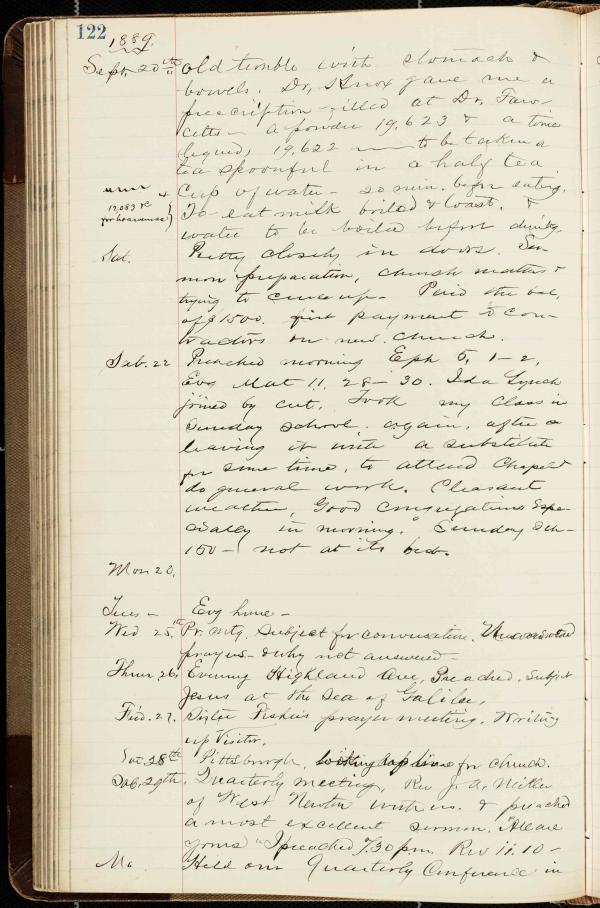 122
1889.
Sept. 20th old trouble with stomach &
bowels. Dr. Knox gave me a
prescription - filled at Dr. Faw-
cetts - a powder 19,623 & a time
liquid, 19,622 to be taken a
tea spoonful in a half tea
cup of water - 20 min. before eating.
17,083 re
for hoarseness
To eat milk boiled & toast. &
water to be boiled before drinkg.
Sat. Pretty closely in doors. Ser-
mon preparation, church matters &
trying to cure up. Paid the bal,
of $1500, first payment to con-
tractors on new church.
Sab. 22 Preached morning Eph 5, 1-2,
Evg Mat 11, 28-30. Ida Lynch
joined by cert. Took my class in
Sunday school again, after a
leaving it with a substitute
for some time, to attend Chapel &
do general work. Pleasant
weather, Good congregations Espe-
cially in morning. Sunday Sch-
150 - not at its best.
Mon 23,
Tues - Evg home -
Wed 25.th Pr. mtg. Subject for conversation. Unanswered
prayers - & why not answered -
Thur 26. Evening Highland Ave, Preached, Subject
Jesus at the Sea of Galilee,
Frid. 27. Sister Fishers prayer meeting. Writing
up Visitor.
Sat. 28th Pittsburgh, looking up lime for church.
Sab. 29th. Quarterly meeting, Rev J. A. Miller
of West Newton with us. & preached
a most excellent sermon. "All are
yours" I preached 7.30 p.m. Rev 11. 10 -
Mo Held our Quarterly Conference in